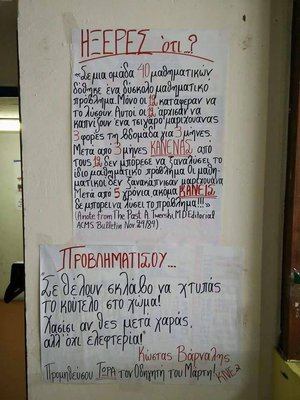 ΗΞΕΡΕΣ ότι..?
«Σε μια ομάδα 40 μαθηματικών
δόθηκε ένα δύσκολο μαθηματικό
πρόβλημα. Μόνο οι 12 κατάφεραν να
το λύσουν. Αυτοί οι 12 άρχισαν να
καπνίζουν ένα τσιγάρο μαριχουάνας
3 φορές τη βδομάδα για 3 μήνες.
Μετά από 3 μήνες ΚΑΝΕΝΑΣ από
τους 12 δεν μπόρεσε να ξαναλύσει το
ίδιο μαθηματικό πρόβλημα. Οι μαθη-
ματικοί δεν ξανακάπνισαν μαριχουάνα
Μετά από 5 χρόνια ακόμα ΚΑΝΕΙΣ
δε μπορεί να λύσει το πρόβλημα!!!»
(A note from The Past A. Twerski, M.D Editorial
ACMS Bulletin Nov 24/84)
ΠΡΟΒΛΗΜΑΤΙΣΟΥ...
Σε θέλουν σκλάβο να χτυπάς
το κούτελο στο χώμα!
Χασίσι αν θες μετά χαράς,
αλλ' όχι ελεφτερία!
Κώστας Βάρναλης
Προμηθεύσου ΤΩΡΑ τον Οδηγητή του Μάρτη!
ΚΝΕ